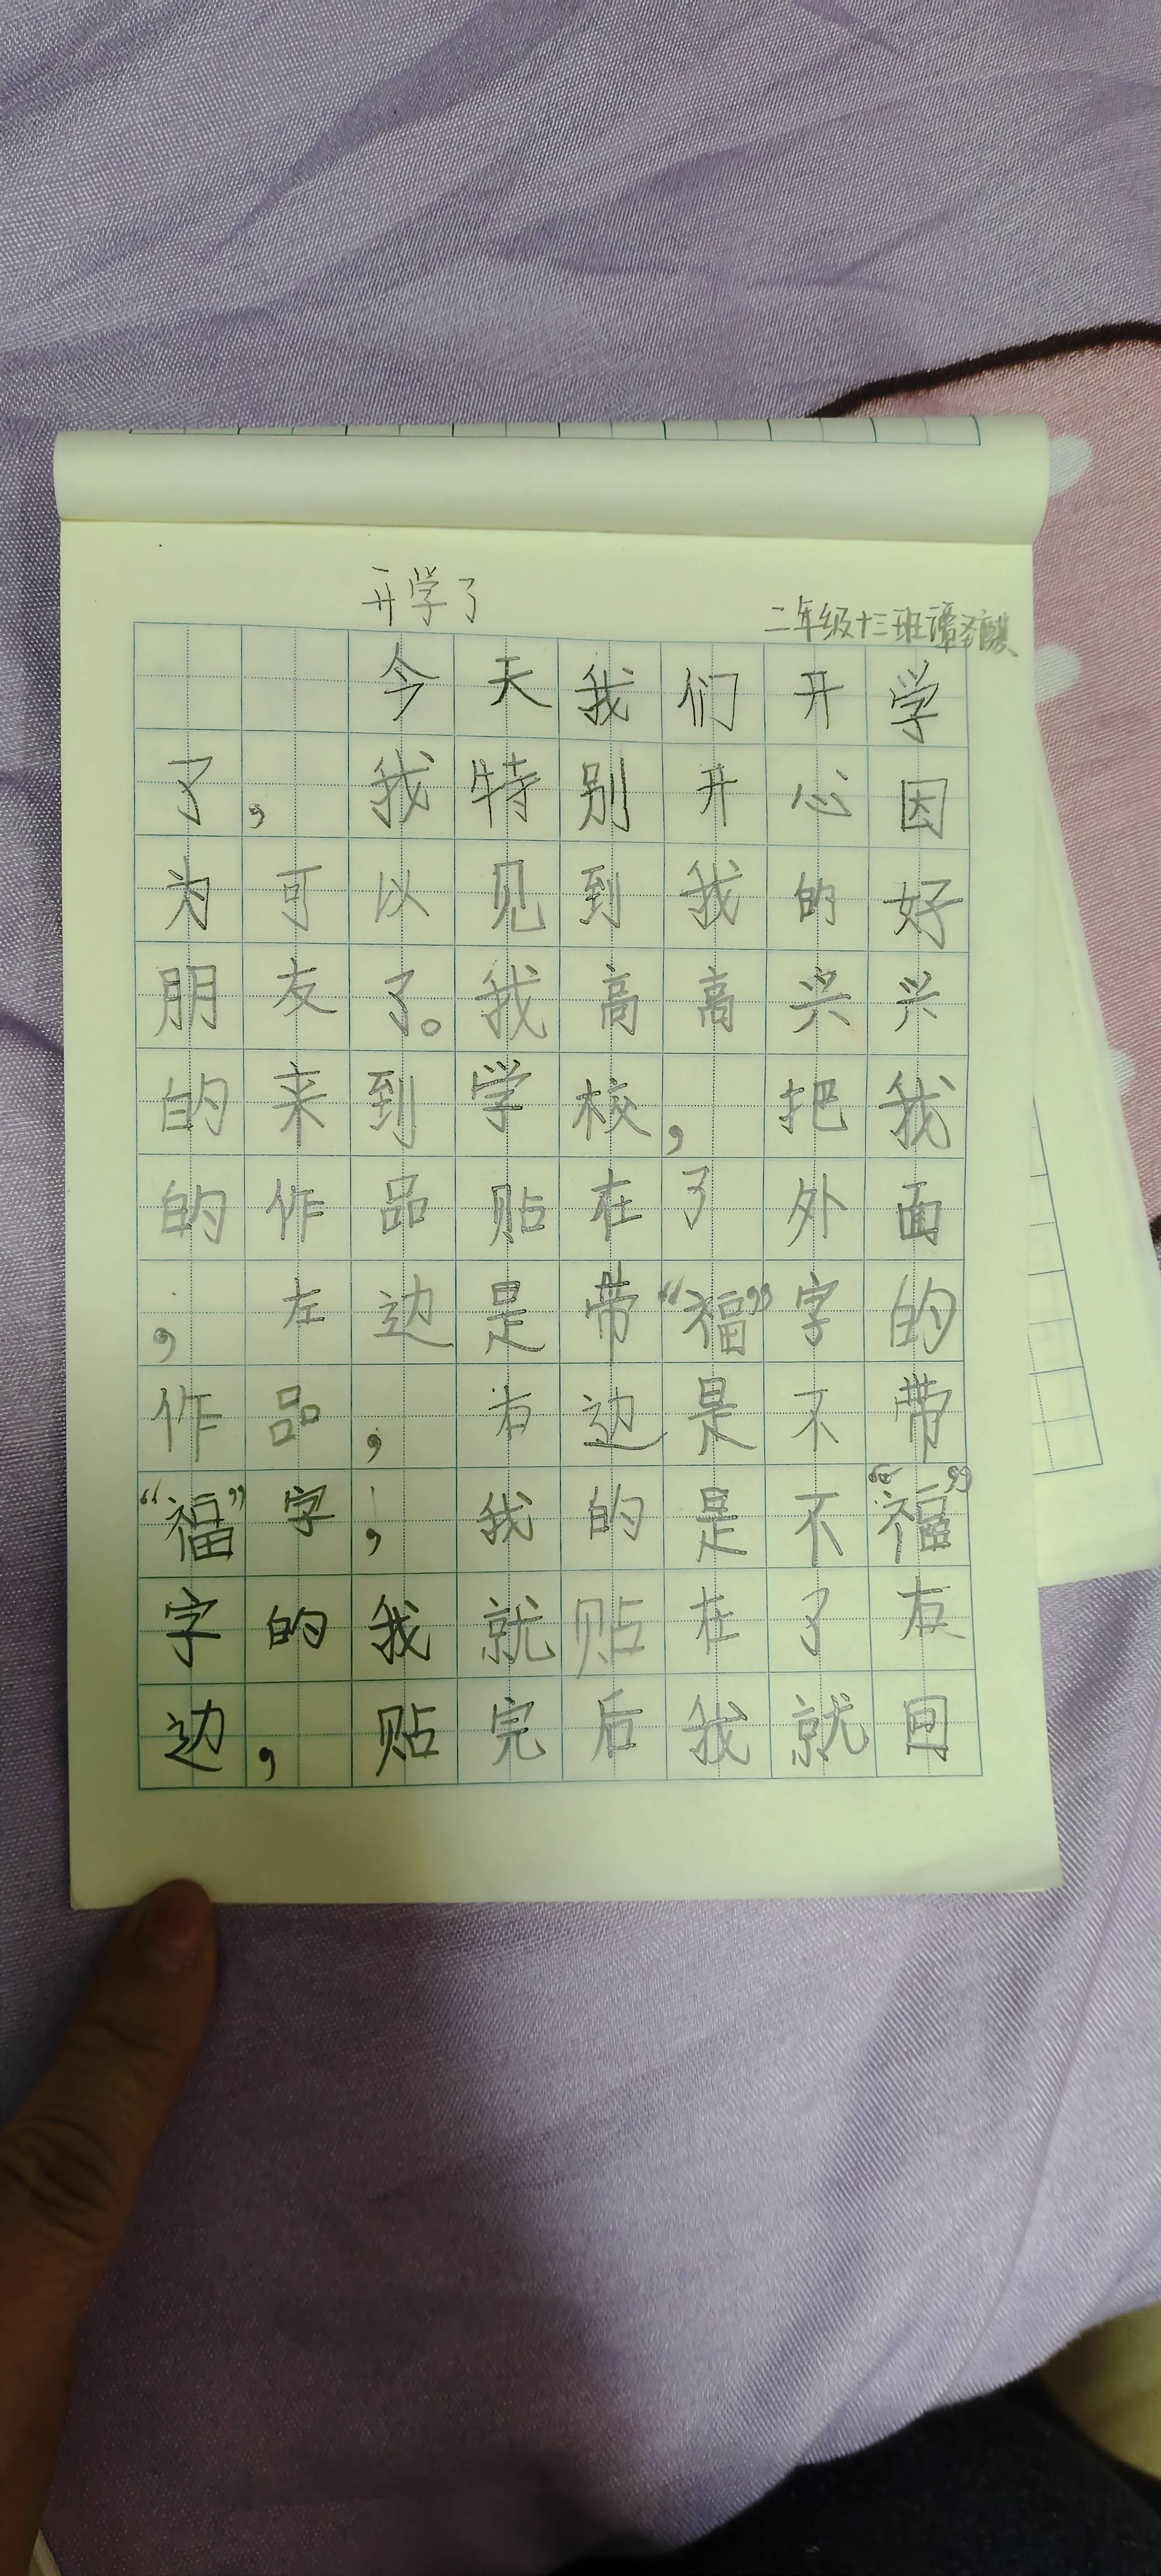 开学了
二年级十三班谭
今天我们开学
了,我特别开心因
为可以见到我的好
朋友了。我高高兴兴
的来到学校,把我
的作品贴在了外面
,左边是带“福”字的
作品,右边是不带
“福”字,我的是不“福”
字的我就贴在了友
边,贴完后我就回